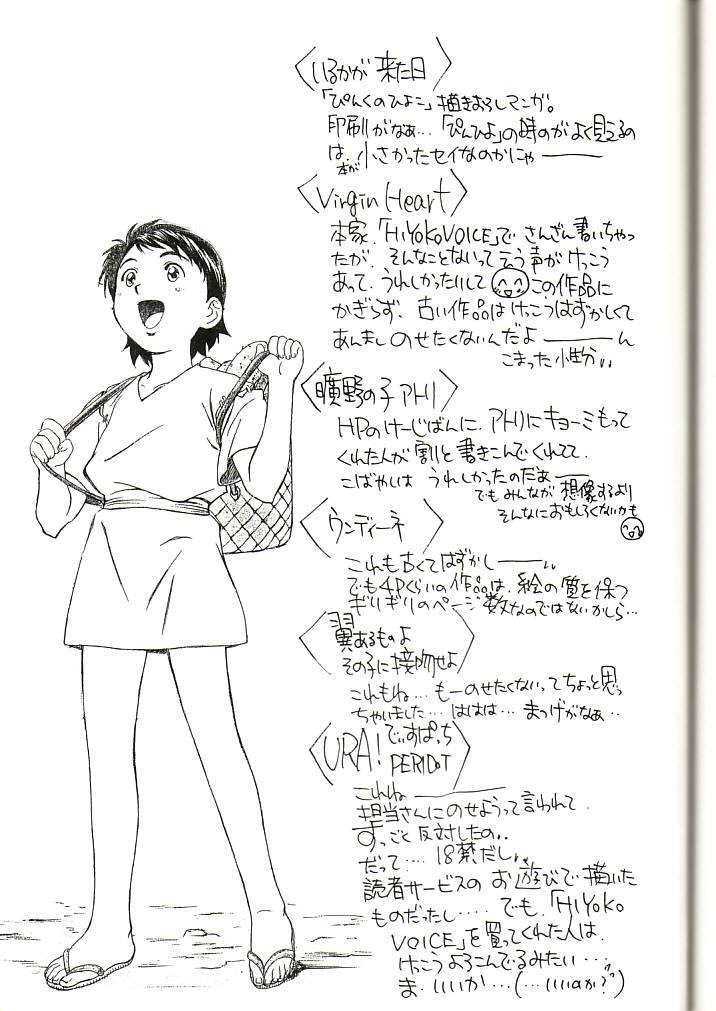 〈いるかが 来た日〉
「ぴんくのひよこ」描きおろしマンガ。
印刷がなぁ…「ぴんひよ」の時のがよく見えるの
は、本が小さかったセイなのかにゃ―――
〈Virgin Heart〉
本家、「HiYoKoVOICE」で さんざん書いちゃっ
たが、そんなことないって言う声がけっこう
あって、うれしかったりして この作品に
かぎらず、古い作品はけっこうはずかしくて
あんましのせたくないんだよ―――ん
こまった小性分
〈曠野の子 アHリ〉
HPのけーじばんに、アHリにキョーミもって
くれた人が 割と書きこんでくれてて、
こばやしは うれしかったのだぁ――
でもみんなが 想像するより
そんなにおもしろくないかも
〈ウンディーネ〉
これも古くてはずかし―――
でも4Pくらいの作品は、絵の質を保つ
ギリギリのページ数なのではないかしら…
〈翼あるものよ
その子に接吻せよ〉
これもね… もーのせたくないってちょっと思っ
ちゃいました… ははは… まつげがなぁ…
〈URA! でぃすぱっち
PERIDOT〉
これね―――
担当さんにのせようって言われて、
すっごく 反対したの
だって… 18禁だし
読者サービスの お遊びで 描いた
ものだったし… でも、「HiYoKo
VOICE」を買ってくれた人は、
けっこう よろこんでるみたい…
ま、いいか…(…いいのか?)